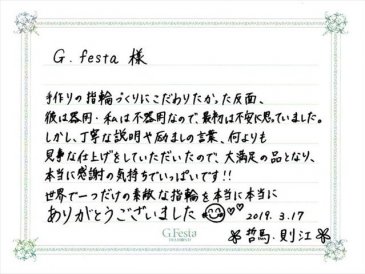 G.festa 様
手作りの指輪づくりにこだわりたかった反面、
彼は器用・私は不器用なので、最初は不安に思っていました。
しかし、丁寧な説明や励ましの言葉、何よりも
見事な仕上げをしていただいたので、大満足の品となり、
本当に感謝の気持ちでいっぱいです!!
世界で一つだけの素敵な指輪を本当に本当に
ありがとうございました 2019.3.17
G.Festa
哲馬.則江